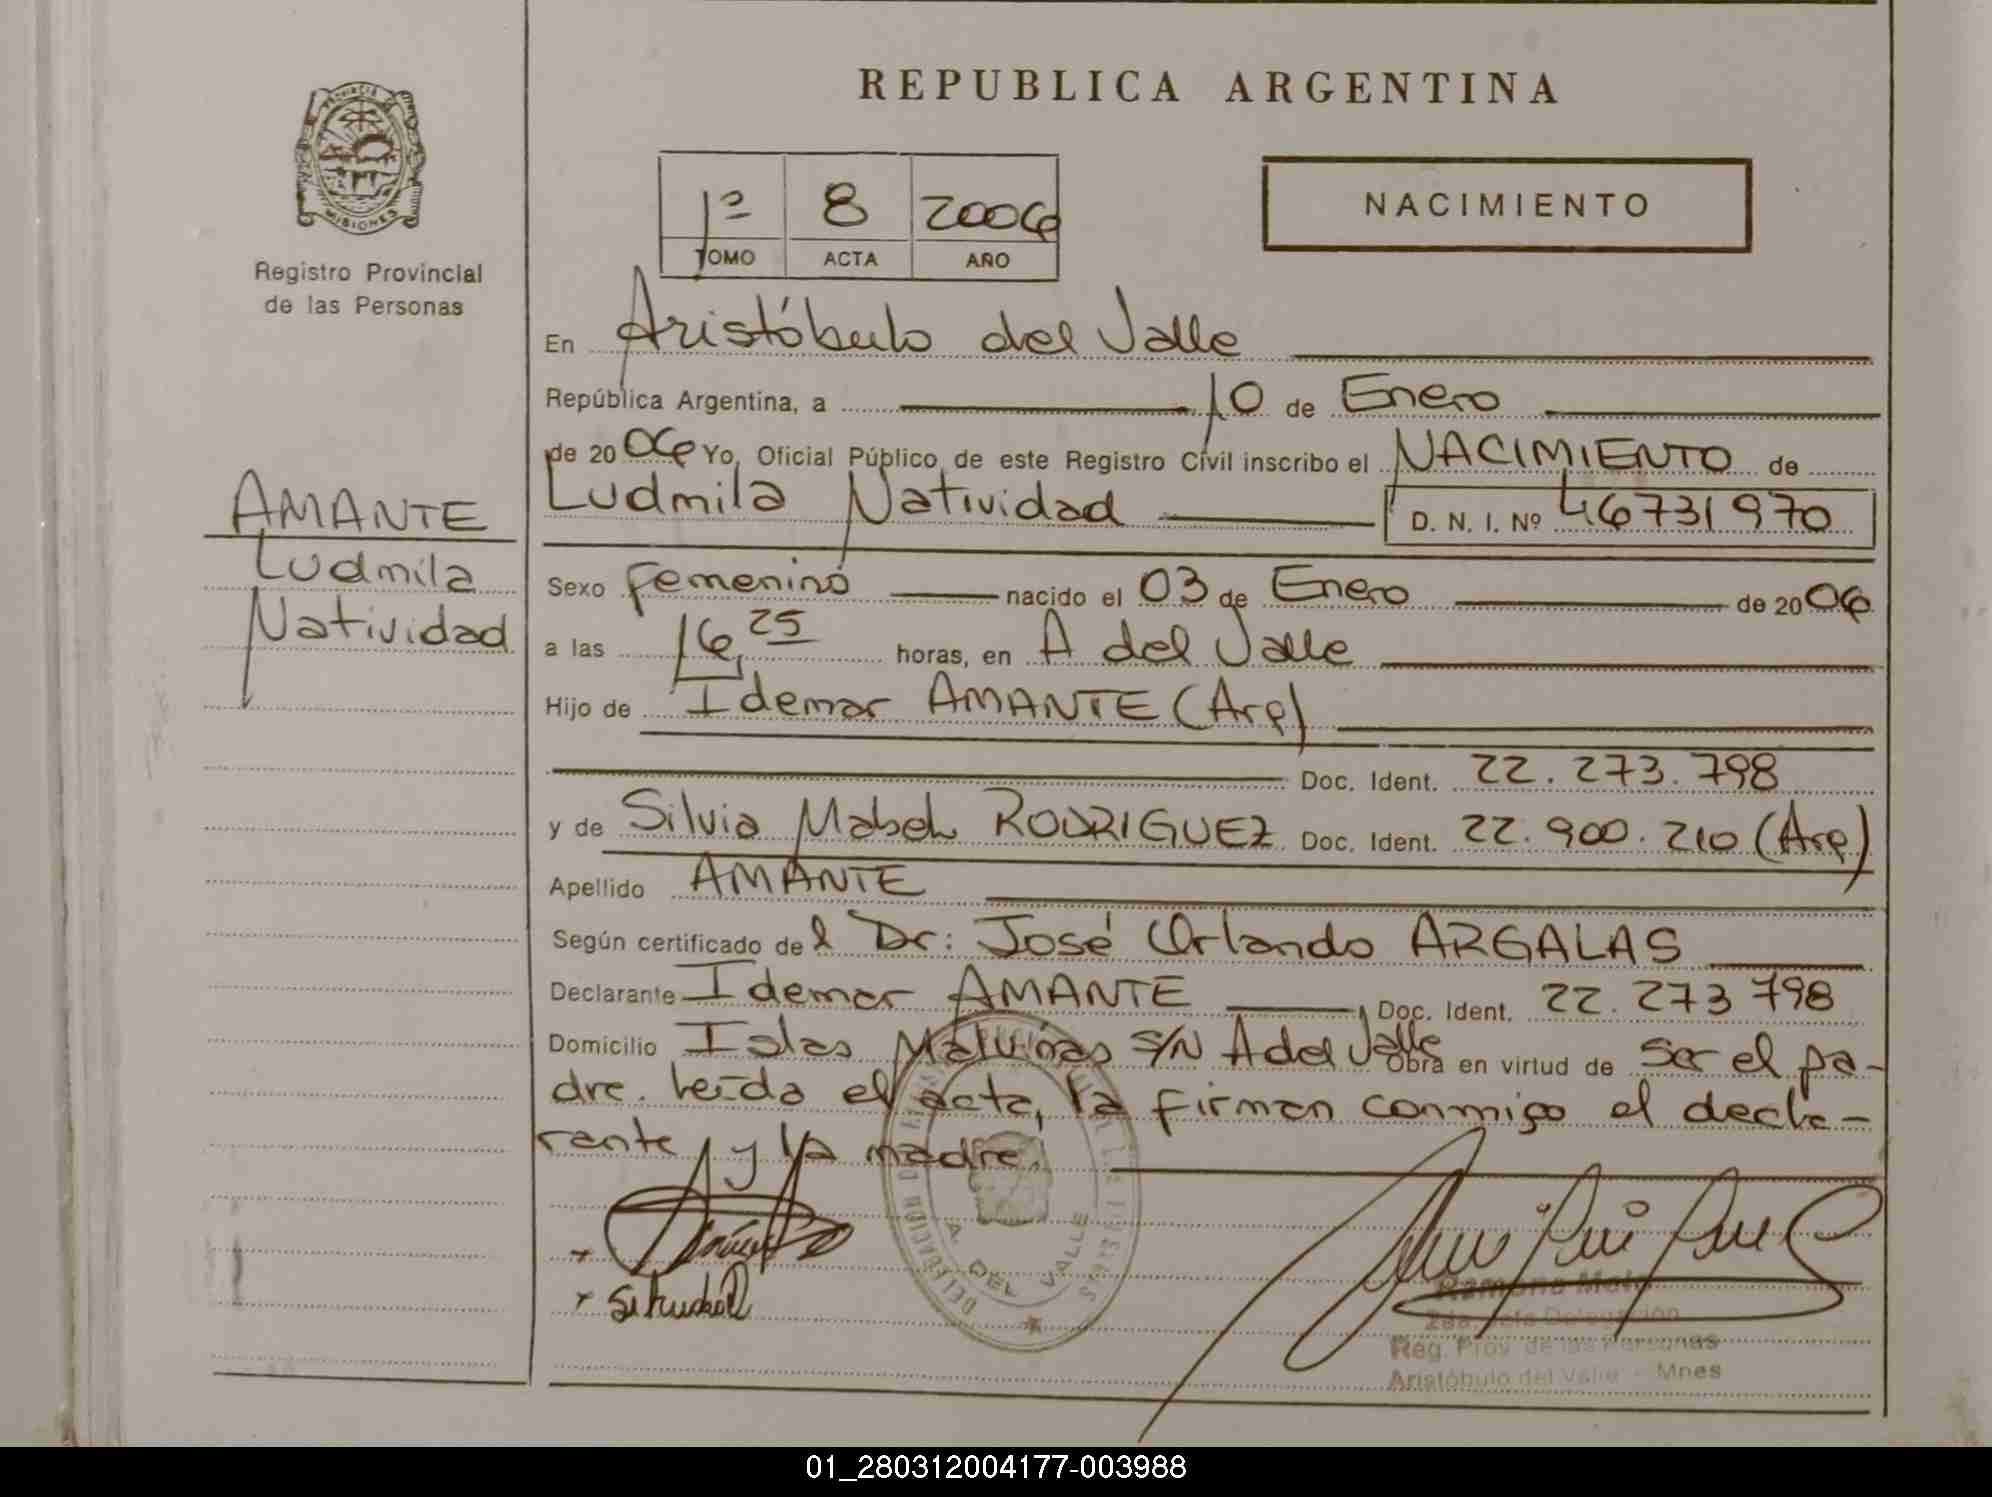 REPUBLICA ARGENTINA
PROVINCIA DE
MISIONES
Registro Provincial
de las Personas
1º 8 2006
TOMO ACTA AÑO
NACIMIENTO
En Aristóbulo del Valle
República Argentina, a 10 de Enero
de 2006 Yo, Oficial Público de este Registro Civil inscribo el NACIMIENTO de
Ludmila Natividad D. N. I. Nº 46731970
AMANTE
Ludmila
Natividad
Sexo femenino nacido el 03 de Enero de 2006
a las 16,25 horas, en A del Valle
Hijo de Idemar AMANTE (Arg)
Doc. Ident. 22.273.798
y de Silvia Mabel RODRIGUEZ Doc. Ident. 22.900.210 (Arg)
Apellido AMANTE
Según certificado del Dr: José Orlando ARGALAS
Declarante Idemar AMANTE Doc. Ident. 22.273 798
Domicilio Islas Malvinas S/N A del Valle Obra en virtud de ser el pa-
dre. Leída el acta, la firman conmigo el decla-
rante y la madre.
DELEGACION
A. DEL VALLE
Ramona
2da. Jefe Delegación
Reg. Prov. de las Personas
Aristóbulo del Valle - Mnes
01_280312004177-003988